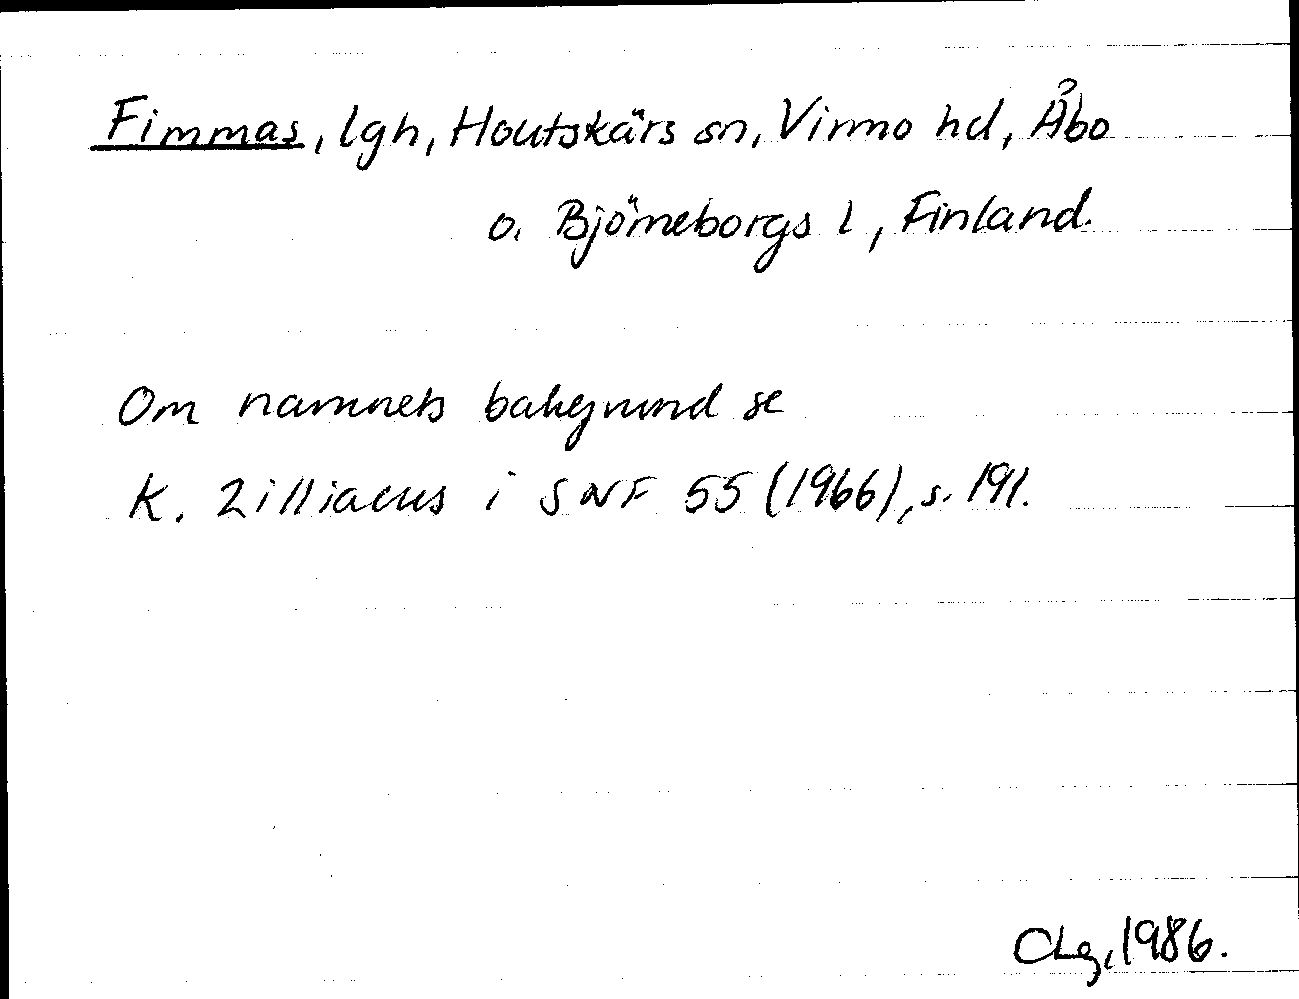 Fimmas, lgh, Houtskärs sn, Virmo hd, Åbo
o. Björneborgs l, Finland.
Om namnets bakgrund se
K. Zilliacus i SNF 55 (1966), s. 191.
CLg, 1986.